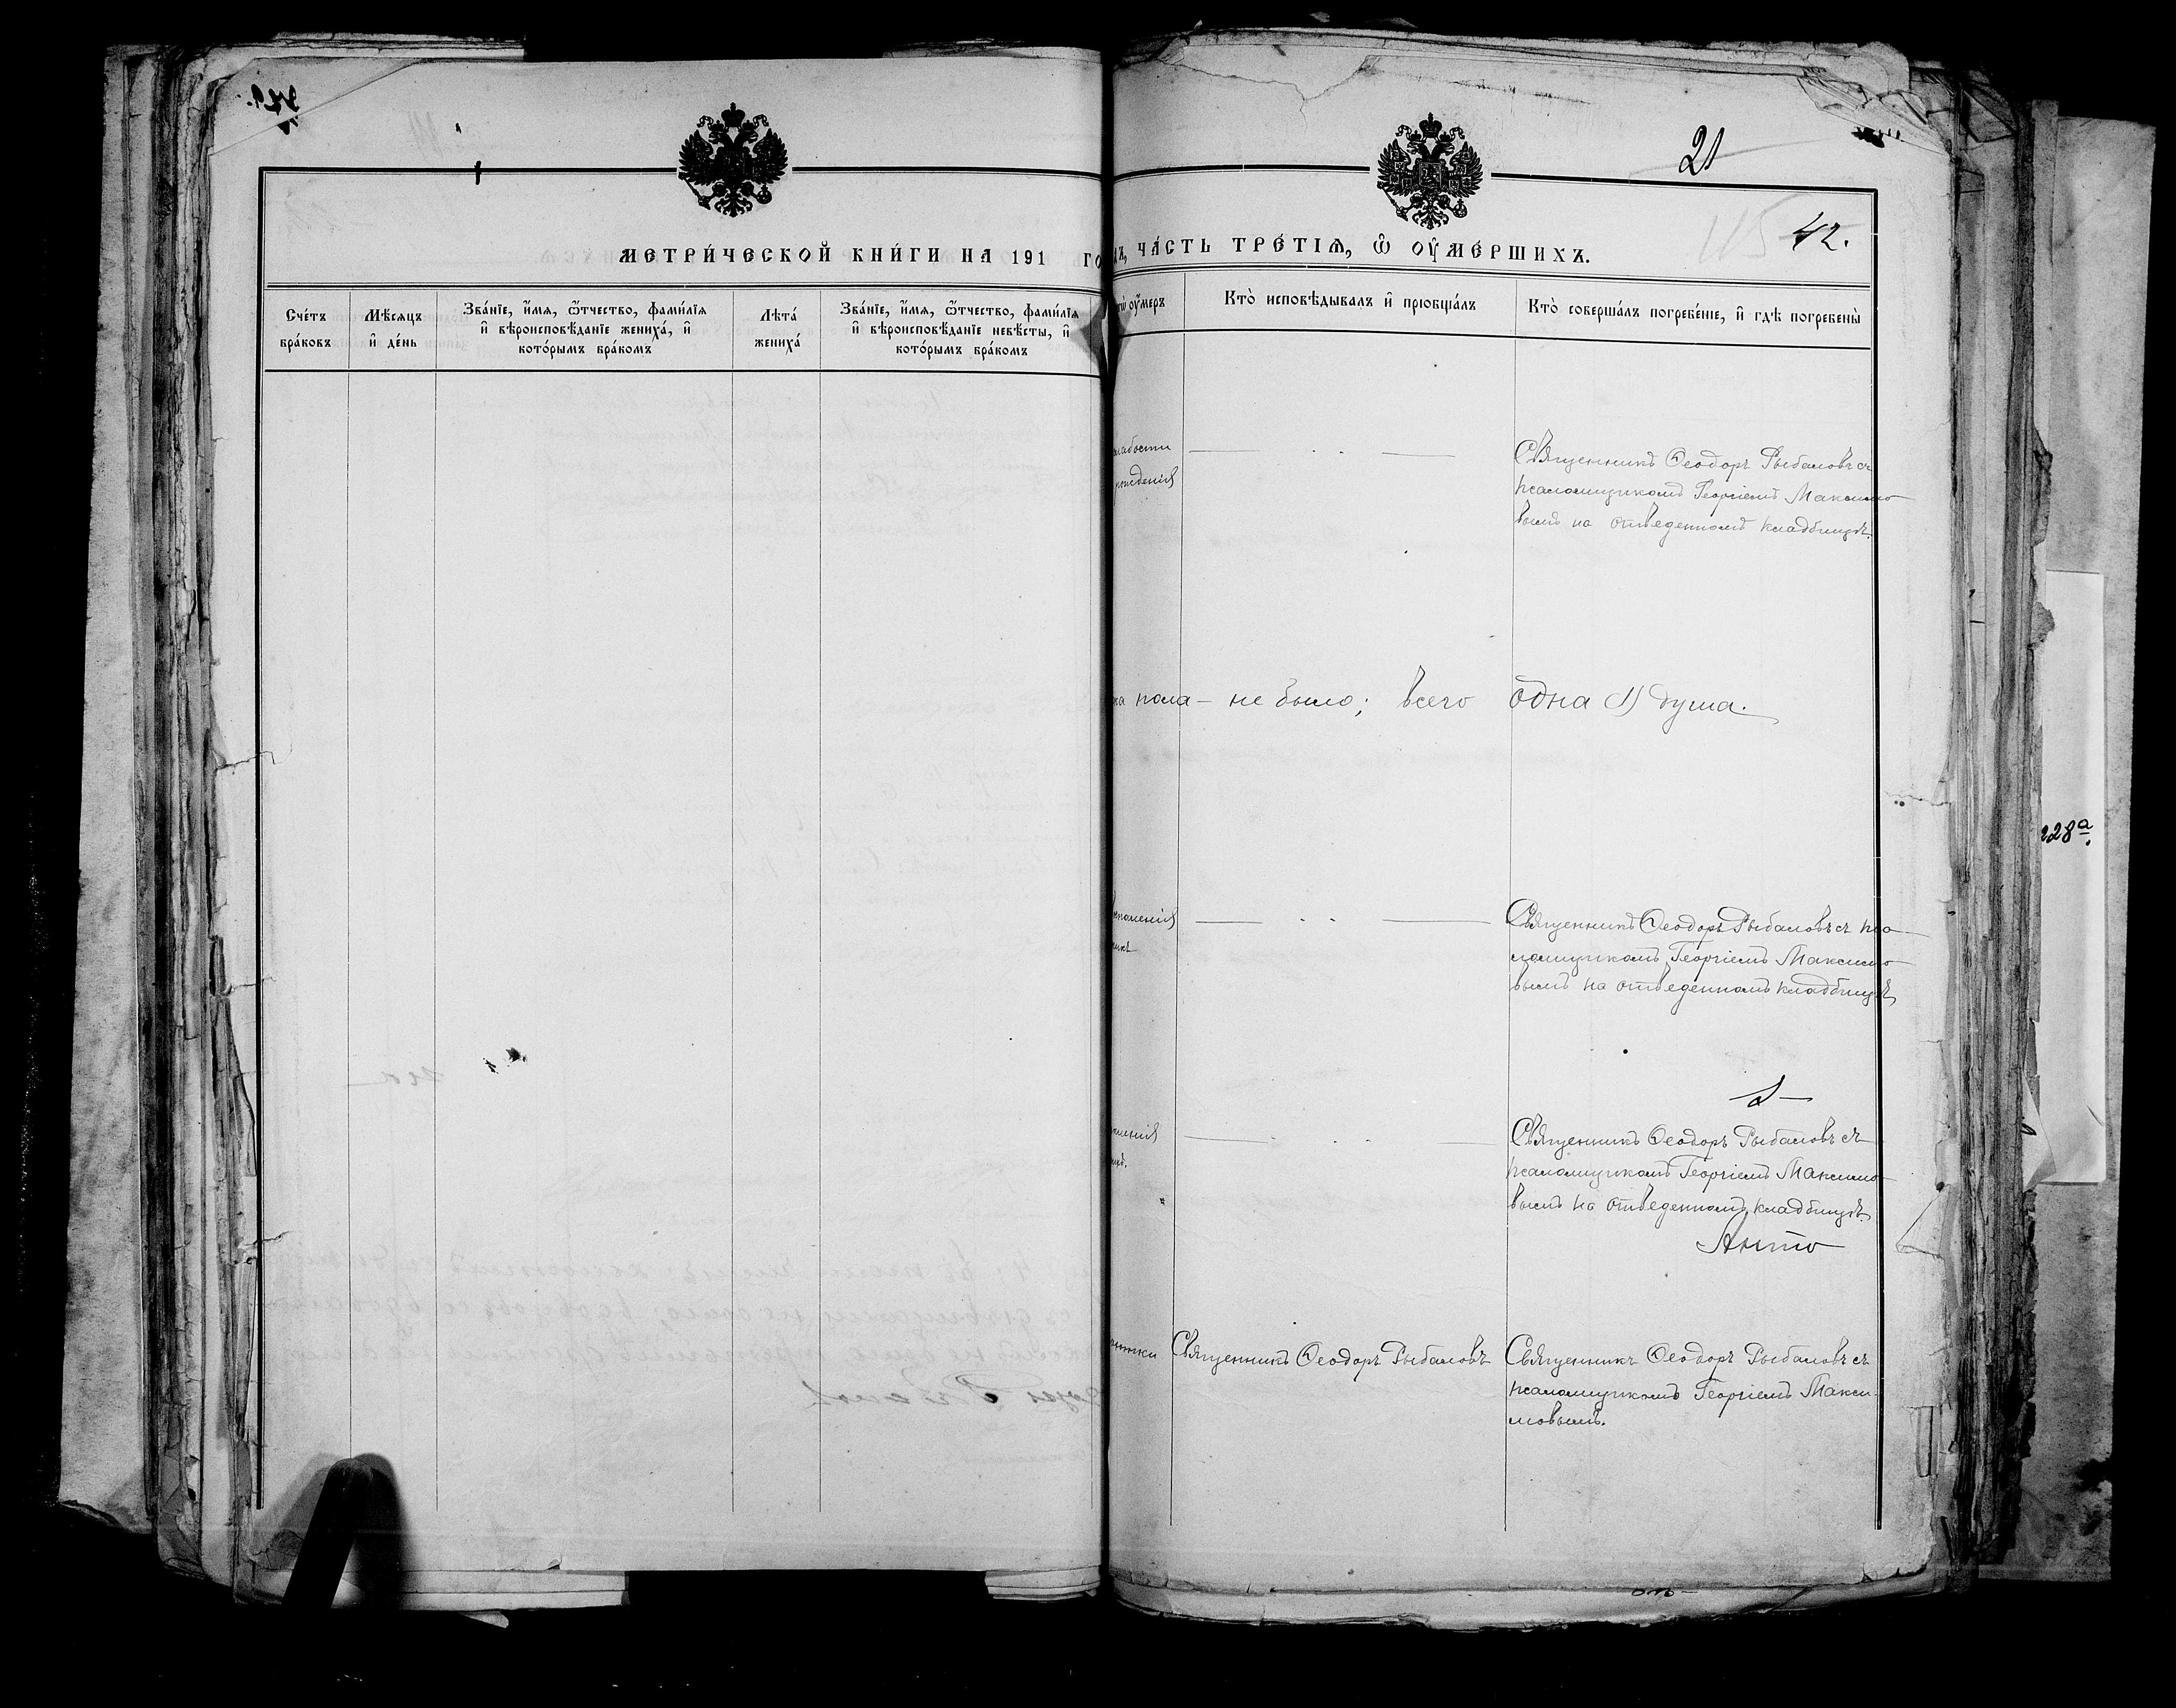 МЕТРИ́ЧЕСКОЙ КНИ́ГИ НА 191 ГО
Сче́тъ бра́ковъ
Мѣ́сяцъ и҆ де́нь
Зва́нїе, и҆́мѧ, ѻ҆́тчество, фами́лїѧ
и҆ вѣроисповѣ́данїе жениха́, и҆
кото́рымъ бра́комъ
Лѣта́ жениха́
Зва́нїе, и҆́мѧ, ѻ҆́тчество, фами́лїѧ
и҆ вѣроисповѣ́данїе невѣ́сты, и҆
кото́рымъ бра́комъ
21
42.
ЧА́СТЬ ТРЕ́ТІѦ, Ѽ ОУ҆МЕ́РШИХЪ.
оу҆́меръ
Кто̀ исповѣ́дывалъ и҆ прїѡбща́лъ
Кто̀ соверша́лъ погребе́нїе, и҆ гдѣ̀ погребены̀
лабости
рожденія
Священникъ Ѳеодоръ Рыбаловъ съ
псаломщикомъ Георгіемъ Максимо
вымъ на отведенномъ кладбищѣ.
ка пола — не было; всего одна (1) душа.
Священникъ Ѳеодоръ Рыбаловъ съ пса
ломщикомъ Георгіемъ Максимо
вымъ на отведенномъ кладбищѣ
Священникъ Ѳеодоръ Рыбаловъ съ
псаломщикомъ Георгіемъ Максимо
вымъ на отведенномъ кладбищѣ.
Священникъ Ѳеодоръ Рыбаловъ
Священникъ Ѳеодоръ Рыбаловъ съ
псаломщикомъ Георгіемъ Макси-
мовымъ.
228а.